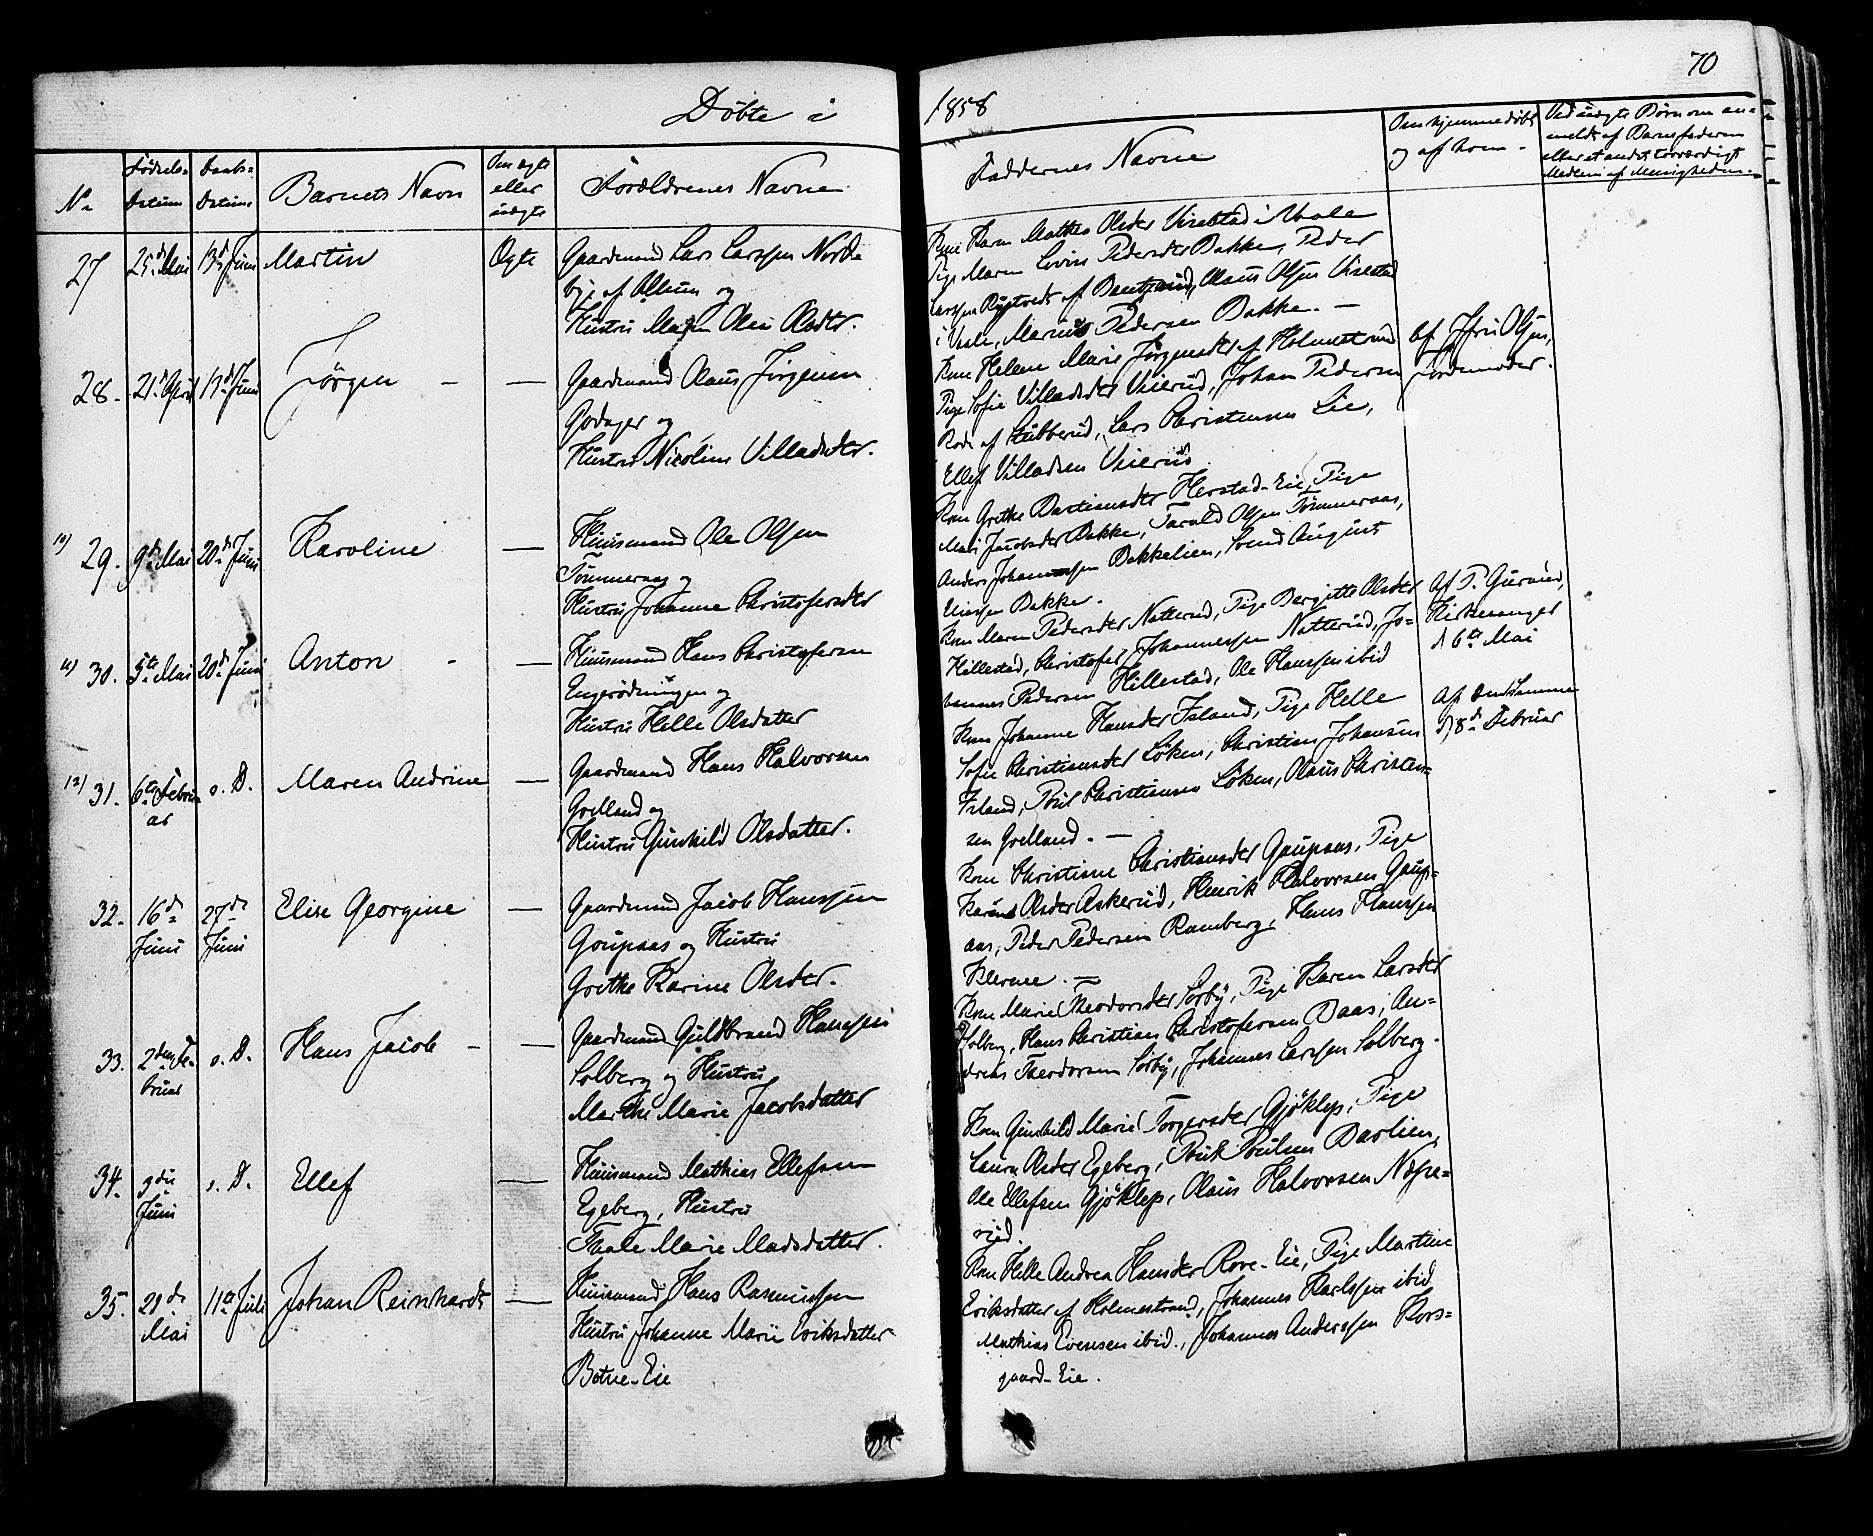 Døbte i
1858
70
No
Fødsels-
Datum
Daabs-
Datum
Barnets Navn
Om ægte
eller
uægte
Forældrenes Navne
Faddernes Navne
Om hjemmedøbt
og af hvem.
Ved uægte Børn om an-
meldt af Barnefaderen
eller et andet troværdigt
Medlem af Menigheden.
27
25de Mai
13de Juni
Martin
Ægte
Gaardmand Lars Larssen Nordre
bye af og
Hustru Maren Olea Olsdtr.
Kone Karen Mathea Olsdtr Virestad i Vaale
Pige Maren Lovise Pedersdtr Bakke, Peder
Larssen af Olaus Olsen Virestad
i Vaale, Marius Pedersen Bakke. —
28.
21de April
13de Juni
Jørgen
—
Gaardmand Olaus Jørgensen
Godager og
Hustru Nicoline Villadsdtr.
Kone Helene Marie Jørgensdtr af Holmestrand
Pige Sofie Villadsdtr Veierud, Johan Pedersen
Rode af Lars Christensen Lie,
Ellef Villadsen Veierud
af Olsen,
Jordemoder.
10) 29.
9de Mai
20de Juni
Karoline
—
Huusmand Ole Olsen
Tømmeraas og
Hustru Johanne Christofersdtr
Kone Grethe Bastiansdtr Herstad-Eie, Pige
Mari Jacobsdtr Bakke, Tarald Olsen Tømmeraas,
Anders Johannessen Bakkelien, Svend August
Bakke.
11) 30.
5te Mai
20de Juni
Anton
—
Huusmand Hans Christofersen
Engerødningen og
Hustru Helle Olsdatter
Kone Maren Pedersdtr Natterud, Pige Bergitte Olsdtr
Hillestad, Christofer Johannessen Natterud, Jo-
hannes Pedersen Hillestad, Ole Hanssen ibid
Af P. Gurrud,
Kirkesanger
d 6te Mai
12) 31.
6te Febru-
ar
s. D.
Maren Andrine
—
Gaardmand Hans Halvorsen
Grelland og
Hustru Gunhild Olsdatter.
Kone Johanne Hansdtr Island, Pige Helle
Sofie Christiansdtr Løken, Christian Johansen
Island, Poul Christiansen Løken, Olaus Christen-
sen Grelland. —
Af Densamme
d 8de Februar
32.
16de
Juni
27de
Juni
Elise Georgine
—
Gaardmand Jacob Hanssen
Goupaas og Hustru
Grethe Karine Olsdtr.
Kone Christine Christiansdtr Gaupaas, Pige
Karine Olsdtr Askerud, Henrik Halvorsen Gaup-
aas, Peder Pedersen Ramberg, Hans Hanssen
Klevene. —
33.
2den Fe-
bruar
s. D.
Hans Jacob
—
Gaardmand Guldbrand Hanssen
Solberg og Hustru
Marthe Marie Jacobsdatter
Kone Marie Theodorsdtr Sørby, Pige Karen Larsdtr
Solberg, Hans Christian Christofersen Daas, An-
dreas Theodorsen Sørby, Johannes Larssen Solberg.
34.
9de
Juni
s. D.
Ellef
—
Huusmand Mathias Ellefsen
Egeberg, Hustru
Thale Marie Madsdatter.
Kone Gunhild Marie Torgersdtr Gjøklep, Pige
Laura Olsdtr Egeberg, Poulsen Bærlien,
Ole Ellefsen Gjøklep, Olaus Halvorsen Næpe-
rød.
35.
29de
Mai
11te Juli
Johan Reinhardt
—
Huusmand Hans Rasmussen
Hustru Johanne Marie Eriksdatter
Botne-Eie
Kone Helle Andrea Hansdtr Rove-Eie, Pige Martine
Eriksdatter af Holmestrand, Johannes Karlssen ibid
Mathias Evensen ibid., Johannes Anderssen Kors-
gaard-Eie.